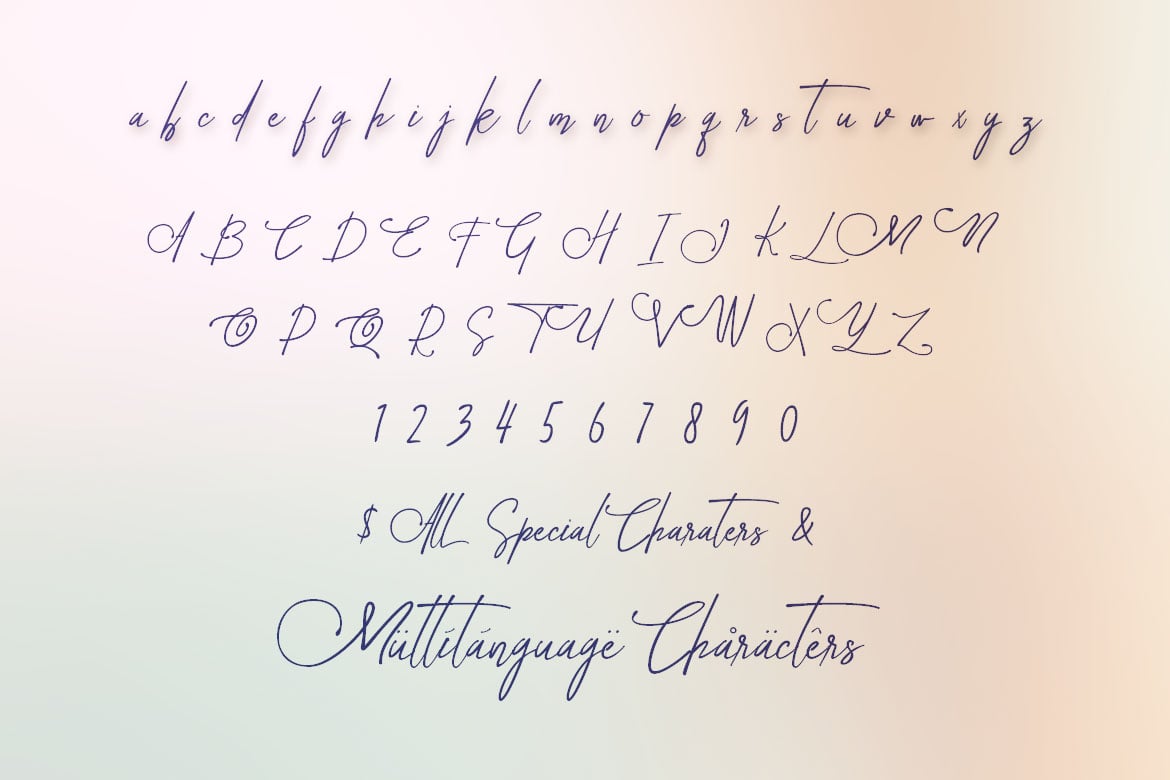 a b c d e f g h i j k l m n o p q r s t u v w x y z
A B C D E F G H I J K L M N
O P Q R S T U V W X Y Z
1 2 3 4 5 6 7 8 9 0
$ All Special Charaters &
Müttítánguagë Chåräctêrs